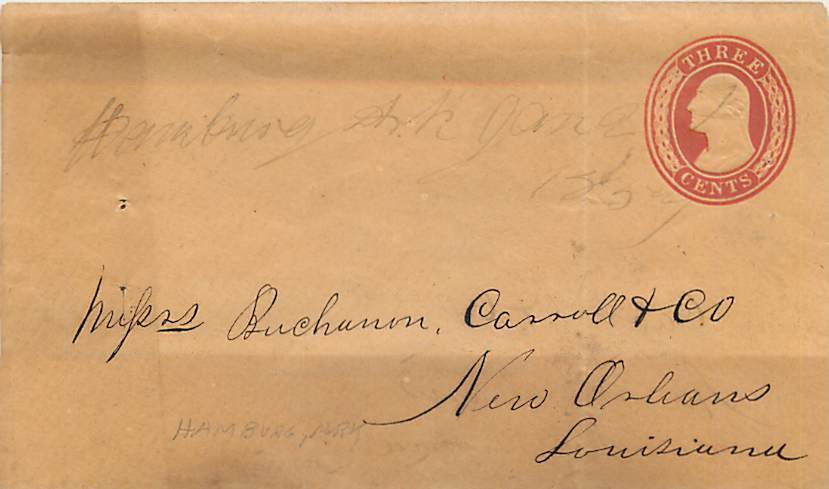 THREE
CENTS
Hamburg Ark Jan 2
Messrs Buchanon, Carroll & Co
New Orleans
HAMBURG, ARK
Louisiana